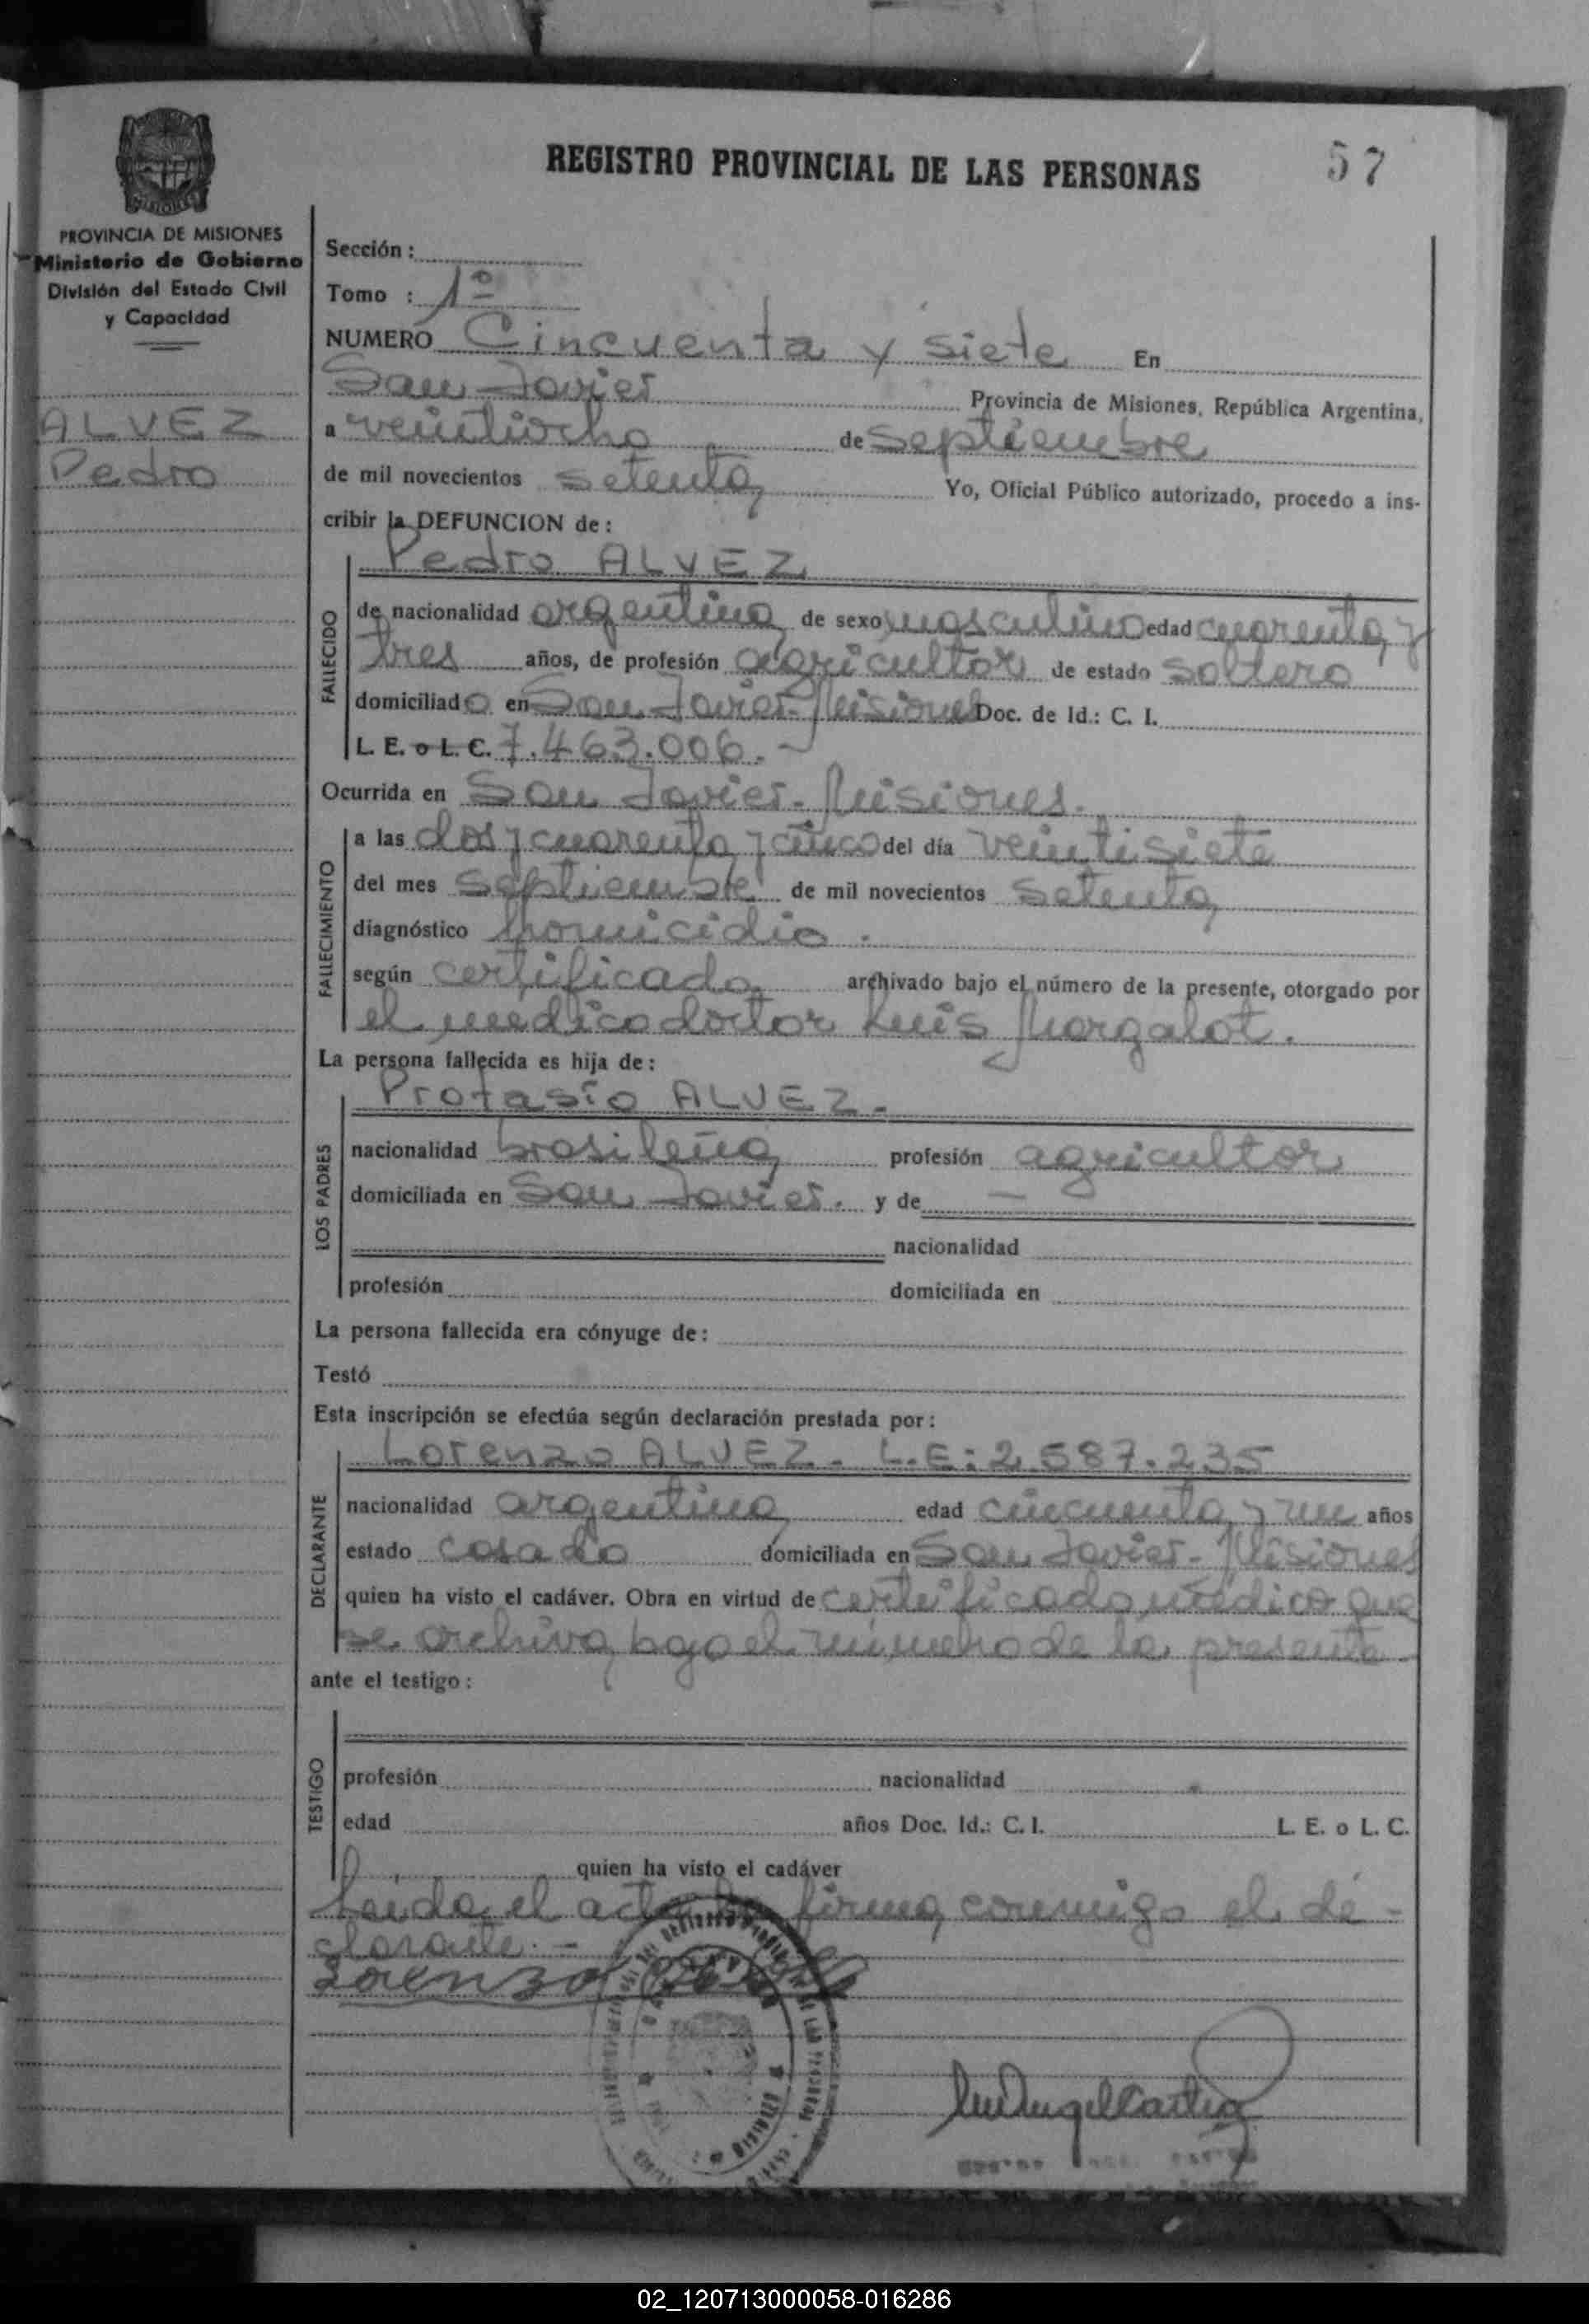 REGISTRO PROVINCIAL DE LAS PERSONAS
57
MISIONES
PROVINCIA DE MISIONES
Ministerio de Gobierno
División del Estado Civil
y Capacidad
ALVEZ
Pedro
Sección :
Tomo : 1º
NUMERO Cincuenta y siete En
San Javier Provincia de Misiones, República Argentina,
a veintiocho de septiembre
de mil novecientos setenta Yo, Oficial Público autorizado, procedo a ins-
cribir la DEFUNCION de :
Pedro ALVEZ
FALLECIDO
de nacionalidad argentina de sexo masculino edad cuarenta y
tres años, de profesión agricultor de estado soltero
domiciliado en San Javier-Misiones Doc. de Id.: C. I.
L. E. o L. C. 7.463.006.-
Ocurrida en San Javier-Misiones.
FALLECIMIENTO
a las dos y cuarenta y cinco del día veintisiete
del mes septiembre de mil novecientos setenta
diagnóstico homicidio.
según certificado archivado bajo el número de la presente, otorgado por
el medico doctor Luis Margalot.
La persona fallecida es hija de :
LOS PADRES
Protasio ALVEZ.-
nacionalidad brasileña profesión agricultor
domiciliada en San Javier. y de —
nacionalidad
profesión domiciliada en
La persona fallecida era cónyuge de :
Testó
Esta inscripción se efectúa según declaración prestada por :
DECLARANTE
Lorenzo ALVEZ. L.E: 2.587.235
nacionalidad argentina edad cincuenta y un años
estado casado domiciliada en San Javier-Misiones
quien ha visto el cadáver. Obra en virtud de certificado médico que
se archiva bajo el número de la presente
ante el testigo :
TESTIGO
profesión nacionalidad
edad años Doc. Id.: C. I. L. E. o L. C.
quien ha visto el cadáver
Leída el acta la firma conmigo el de-
clarante.-
Lorenzo
02_120713000058-016286